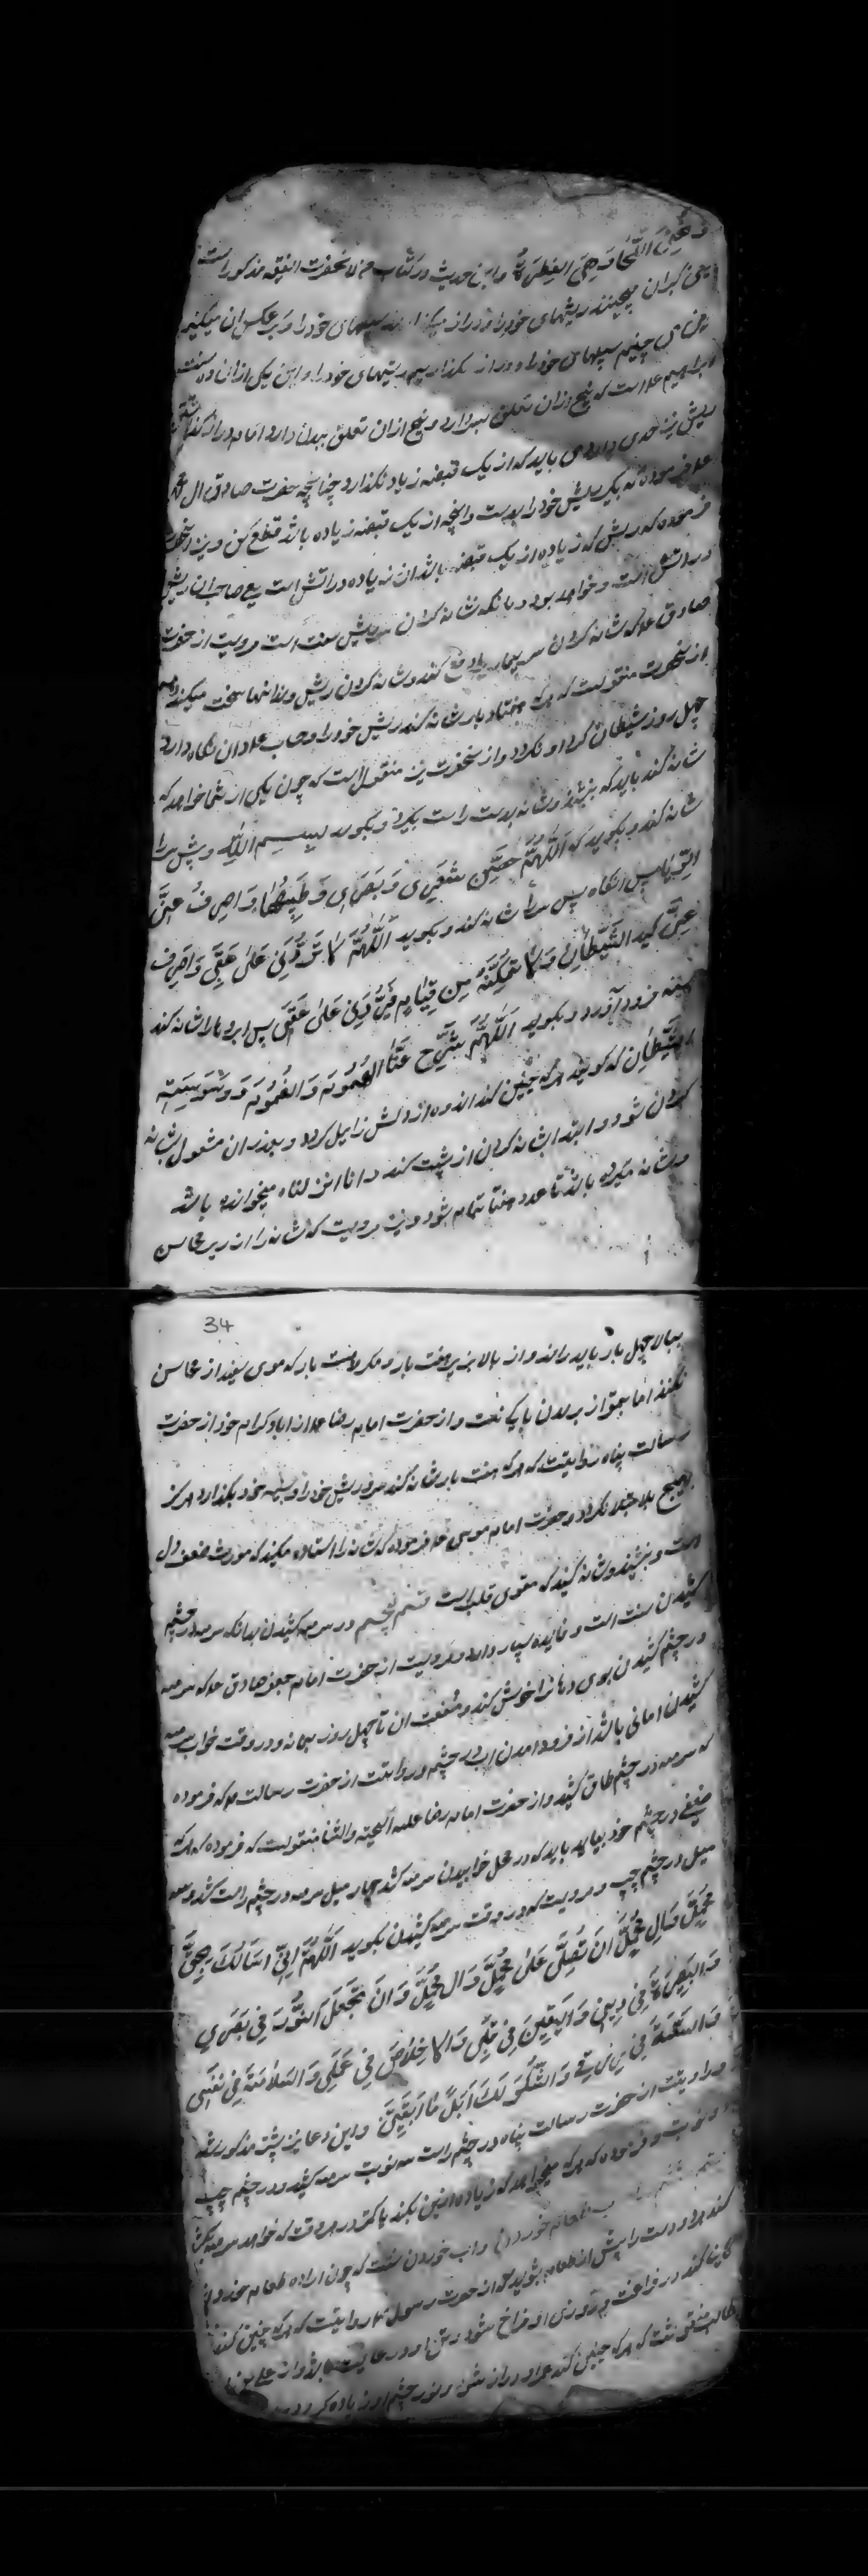 و نعفی اللحا و هی الفطرة و این حدیث در کتاب من لا یحضرة الفقیه مذکور است
یعنی کبران میچینند ریشهای خود را و دراز میکذارند سبیلهای خود را و بر عکس ان میکنیم
یعنی می چینیم سبیلهای خود را و دراز میکذاریم ریشهای خود را و این یکی از ان ده سنت
ابراهیم علا است که پنج از ان تعلق بسر دارد و پنج از ان تعلق ببدن دارد اما دراز کذاشتن
ریش نیز حدی دارد می باید که از یک قبضه زیاد نکذارد چنانچه حضرت صادق ال محمد
علا فرموده که بکیر ریش خود را بدست و انچه از یک قبضه زیاده باشد قطع کن و نیز انحضرت
فرموده که ریش که زیاده از یک قبضه باشد ان زیاده در اتش است یعنی صاحب ان ریش
در اتش است و خواهد بود و بدانکه شانه کردن سر و ریش سنت است مرویست از حضرت
صادق علا که شانه کردن سر بیماری را دفع کند و شانه کردن ریش دندانها را سخت میکند
از انحضرت منقولست که هرکه هفتاد بار شانه کند ریش خود را و حساب عدد ان نکاه دارد
چهل روز شیطان کرد او نکردد و از انحضرت نیز منقول است که چون یکی از شما خواهد که
شانه کند باید که بنشیند و شانه بدست راست بکیرد و بکوید بسم الله و پیش سر را
شانه کند و بکوید که اللهم حسن شعری و بشری و طیبهما و اصرف عنی
الوبا پس انکاه پس سر را شانه کند و بکوید اللهم لا تردنی علی عقبی و اصرف
عنی کید الشیطان و لا تمکنه من قیادی فیردنی علی عقبی پس ابروها را شانه کند
سینه فرود آورد و بکوید اللهم سرح عنا الهموم و الغموم و وسوسة
الشیطان که کویند هرکه چنین کند اندوه از دلش زایل کردد و بعد از ان مشغول بشانه
کردن شود و ابتدا شانه کردن از پشت کند و انا انزلناه میخوانده باشد
و شانه میکرده باشد تا عدد هفتاد تمام شود و نیز مرویست که شانه را از زیر محاسن
34
ببالا چهل بار باید راند و از بالا بزیر هفت بار و مکروهست بار که موی سفید از محاسن
نکنند اما بمقراض بریدن باکی نیست و از حضرت امام رضا علا از اباء کرام خود از حضرت
رسالت پناه روایتست که هرکه هفت بار شانه کند سر و ریش خود را و بسینه خود بکذارد هرکز
بهیچ بلا مبتلا نکردد و حضرت امام موسی علا فرموده که شانه را استاده مکنید که مورث ضعف دل
است و بنشینید و شانه کنید که مقوی قلب است قسم پنجم در سرمه کشیدن بدانکه سرمه در چشم
کشیدن سنت است و فایده بسیار دارد و مرویست از حضرت امام جعفر صادق علا که سرمه
در چشم کشیدن بوی دهانرا خوش کند و منفعت ان تا چهل روز بماند و در وقت خواب سرمه
کشیدن امانی باشد از فرود امدن اب در چشم و روایتست از حضرت رسالت ص که فرموده
که سرمه در چشم طاق کشید و از حضرت امام رضا علیه التحیة و الثنا منقولست که فرموده که هرکه
ضعفی در چشم خود بیابد باید که در محل خوابیدن سرمه کشد چهار میل سرمه در چشم راست کشد و سه
میل در چشم چپ و مرویست که در وقت سرمه کشیدن بکوید اللهم انی اسألک بحق
محمد و ال محمد ان تصلی علی محمد و ال محمد و ان تجعل النور فی بصری
و البصیرة فی دینی و الیقین فی قلبی و الاخلاص فی عملی و السلامة فی نفسی
و السعة فی رزقی و الشکر لک ابدا ما ابقیتنی و این دعا نیز پیشتر مذکور شد
و روایتست از حضرت رسالت پناه در چشم راست سه نوبت سرمه کشید و در چشم چپ
نوبت و فرموده که هرکه میخواهد که زیاده ازین بکند یا کمتر در هر وقت که خواهد سرمه بکشد
طعام خوردن و اب خوردن سنت که چون اراده طعام خوردن
کند هر دو دست را پیش از طعام بشوید از حضرت رسول ص روایتست که هرکه چنین کند
کند در فراخت و روزی او فراخ شود و تن او در عافیت باشد و از علی بن
طالب منقولست که هرکه چنین کند عمر او دراز شود و نور چشم او زیاده کردد